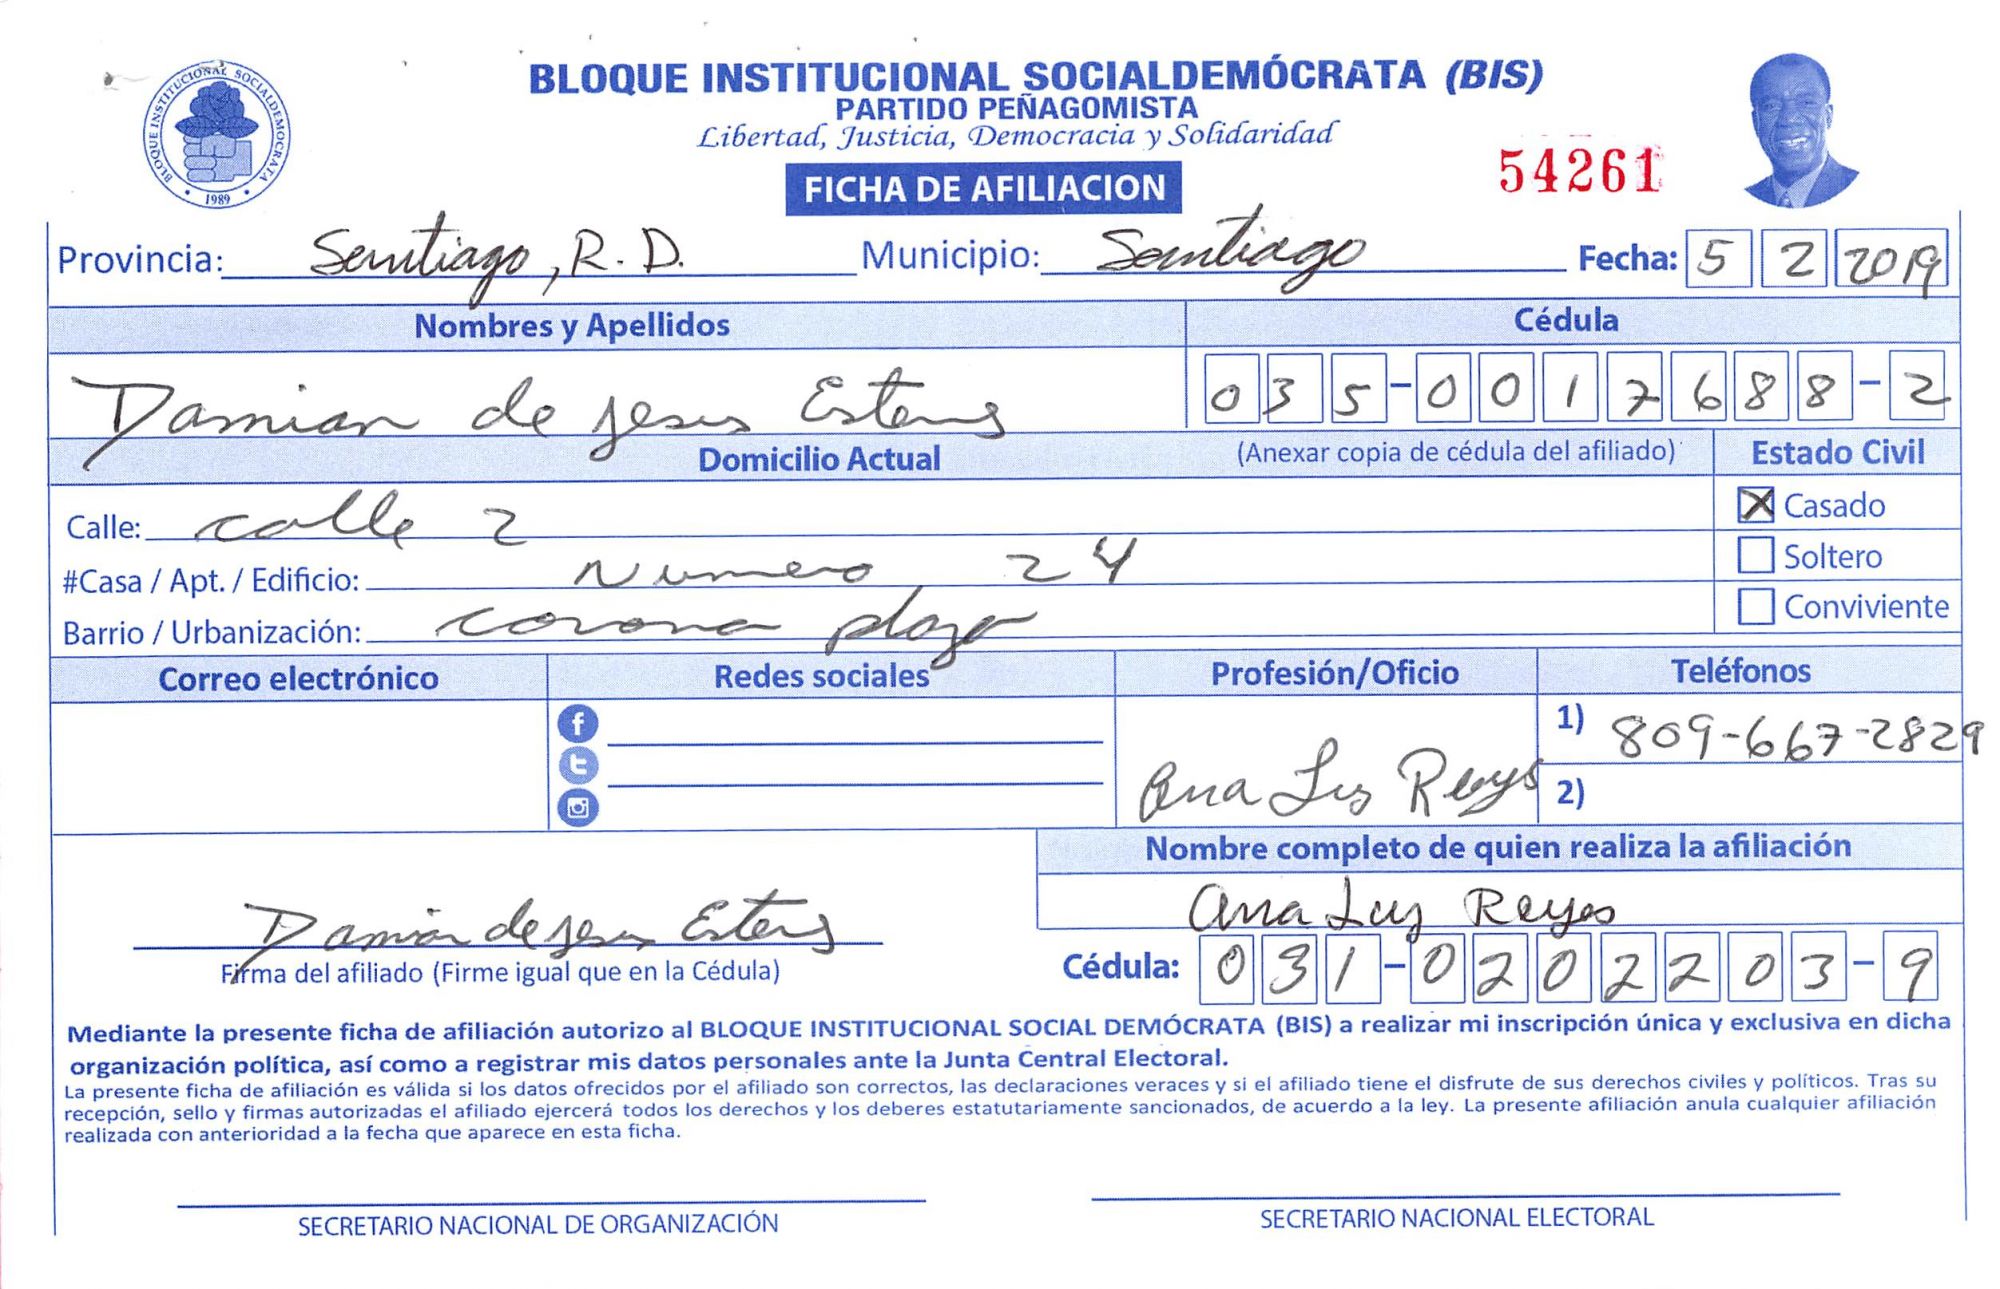 BLOQUE INSTITUCIONAL SOCIALDEMÓCRATA (BIS)
PARTIDO PEÑAGOMISTA
Libertad, Justicia, Democracia y Solidaridad
BLOQUE INSTITUCIONAL SOCIALDEMOCRATA
1989
FICHA DE AFILIACION
54261
Provincia: Santiago, R.D. Municipio: Santiago Fecha: 5 2 2019
Nombres y Apellidos Cédula
Damian de jesus 035-0017688-2
Domicilio Actual (Anexar copia de cédula del afiliado) Estado Civil
Calle: calle 2 X Casado
#Casa / Apt. / Edificio: Numero 24 Soltero
Barrio / Urbanización: corona plaza Conviviente
Correo electrónico Redes sociales Profesión/Oficio Teléfonos
1) 809-667-2829
Ana Luz Reyes 2)
Nombre completo de quien realiza la afiliación
Ana Luz Reyes
Damian de jesus
Firma del afiliado (Firme igual que en la Cédula) Cédula: 031-0202203-9
Mediante la presente ficha de afiliación autorizo al BLOQUE INSTITUCIONAL SOCIAL DEMÓCRATA (BIS) a realizar mi inscripción única y exclusiva en dicha
organización política, así como a registrar mis datos personales ante la Junta Central Electoral.
La presente ficha de afiliación es válida si los datos ofrecidos por el afiliado son correctos, las declaraciones veraces y si el afiliado tiene el disfrute de sus derechos civiles y políticos. Tras su
recepción, sello y firmas autorizadas el afiliado ejercerá todos los derechos y los deberes estatutariamente sancionados, de acuerdo a la ley. La presente afiliación anula cualquier afiliación
realizada con anterioridad a la fecha que aparece en esta ficha.
SECRETARIO NACIONAL DE ORGANIZACIÓN SECRETARIO NACIONAL ELECTORAL